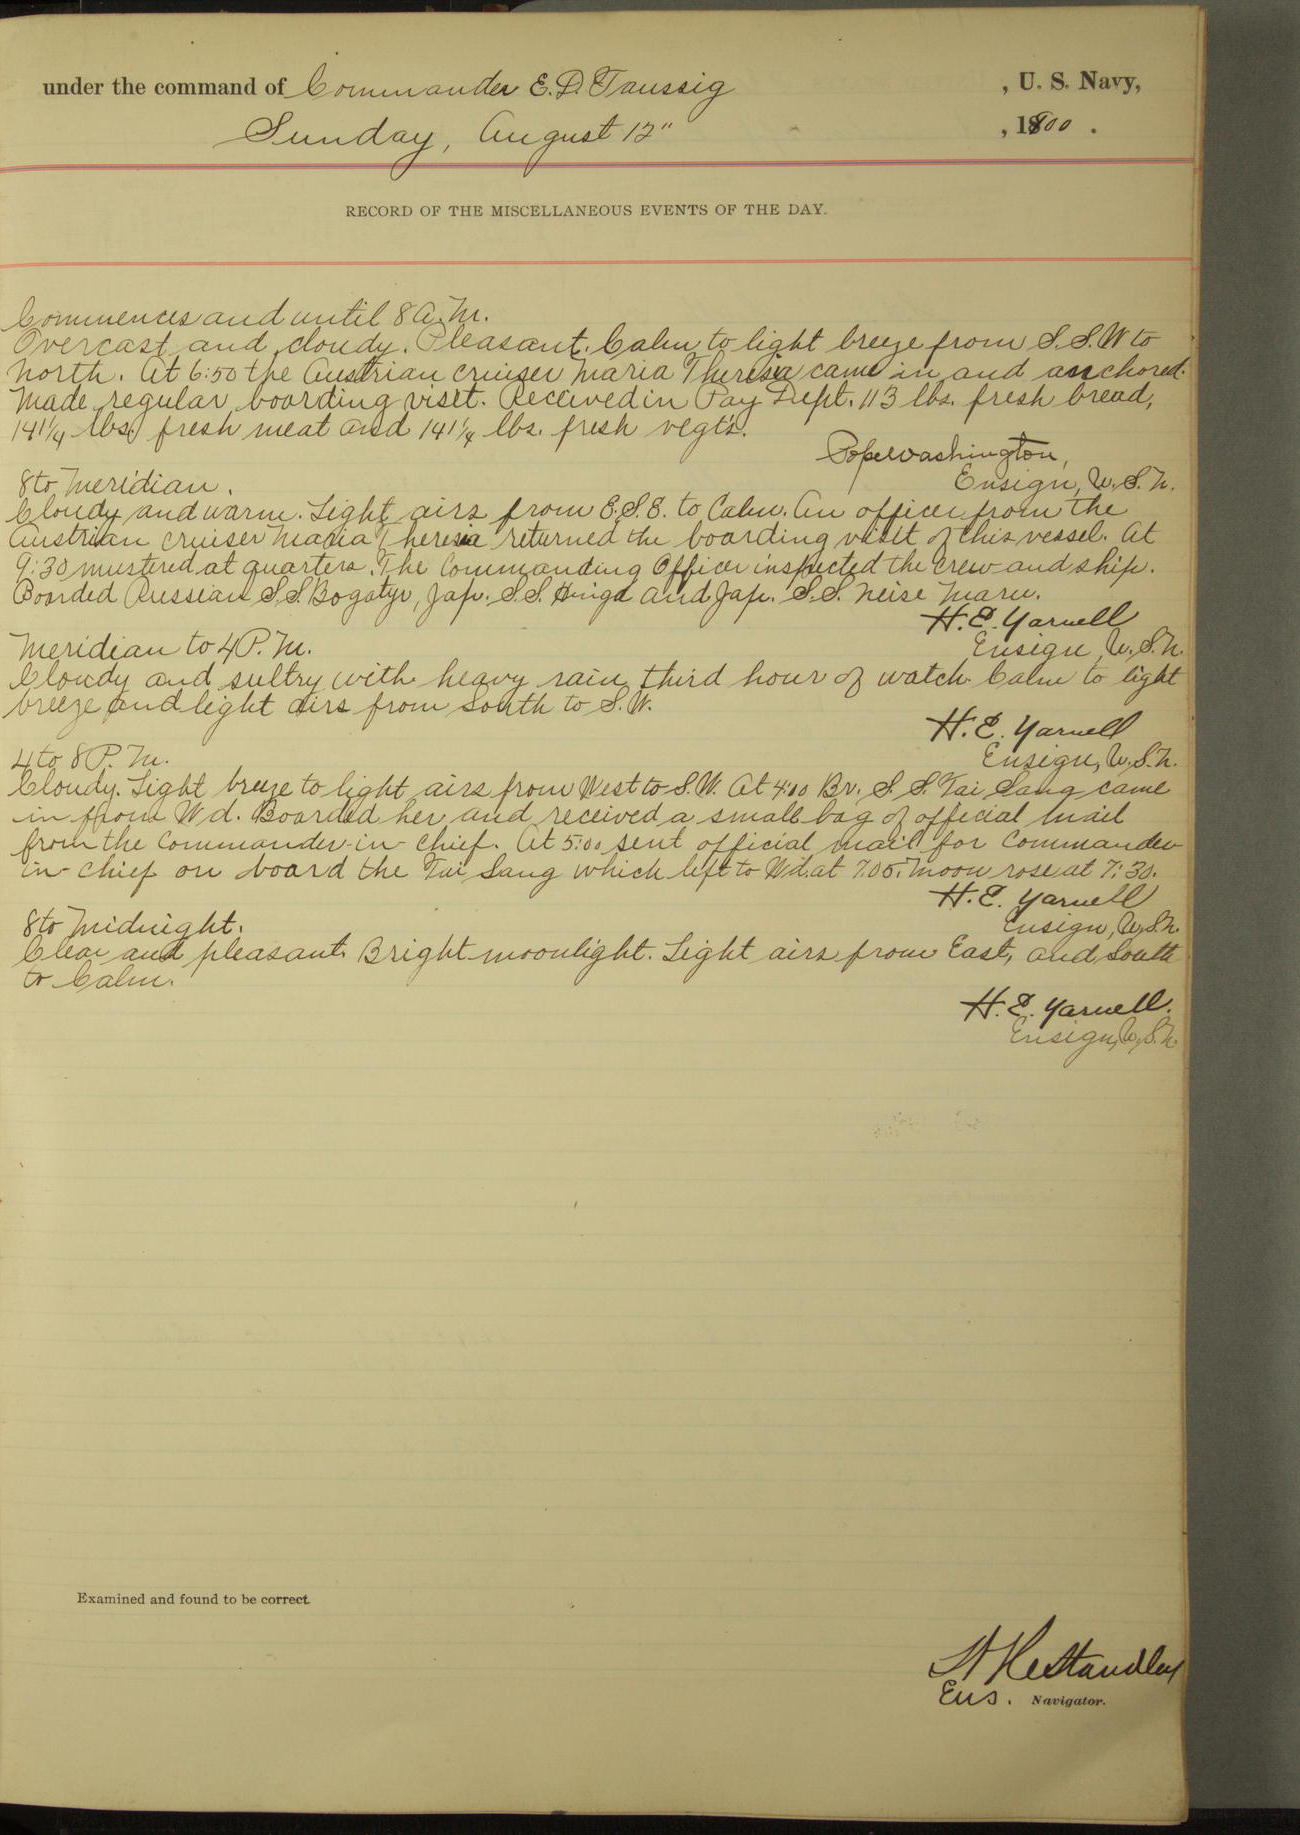 under the command of Commander E. D. Taussig , U. S. Navy,
Sunday, August 12" , 1900 .
RECORD OF THE MISCELLANEOUS EVENTS OF THE DAY.
Commences and until 8 A.M.
Overcast and cloudy. Pleasant. Calm to light breeze from S.S.W to
North. At 6:50 the Austrian cruiser Maria Theresia came in and anchored.
Made regular boarding visit. Received in Pay Dept. 113 lbs. fresh bread,
141¼ lbs. fresh meat and 141¼ lbs. fresh vegt's.
Pope Washington,
Ensign, U.S.N.
8 to Meridian.
Cloudy and warm. Light airs from E.S.E. to Calm. An officer from the
Austrian cruiser Maria Theresia returned the boarding visit of this vessel. At
9:30 mustered at quarters. The Commanding Officer inspected the crew and ship.
Boarded Russian S.S. Bogatyr, Jap. S.S. and Jap. S.S. Neise Maru.
H. E. Yarnell
Ensign, U.S.N.
Meridian to 4 P.M.
Cloudy and sultry with heavy rain third hour of watch. Calm to light
breeze and light airs from South to S.W.
H. E. Yarnell
Ensign, U.S.N.
4 to 8 P.M.
Cloudy. Light breeze to light airs from West to S.W. At 4:00 Br. S.S. Tai Sang came
in from W'd. Boarded her and received a small bag of official mail
from the Commander-in-Chief. At 5:00 sent official mail for Commander-
in-Chief on board the Tai Sang which left to W'd. at 7.05. Moon rose at 7:30.
H. E. Yarnell
Ensign, U.S.N.
8 to Midnight.
Clear and pleasant. Bright moonlight. Light airs from East, and South
to Calm.
H. E. Yarnell.
Ensign, U.S.N.
Examined and found to be correct.
W H Standley
Ens. Navigator.